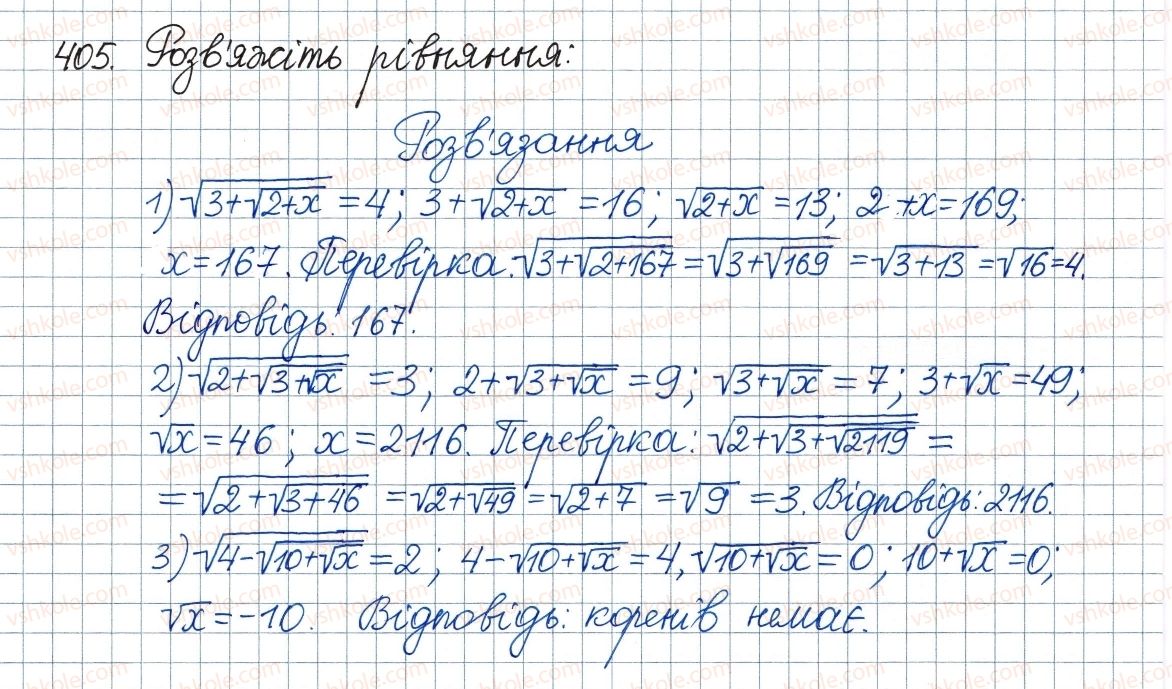 405. Розв'яжіть рівняння:
Розв'язання
1) √(3+√(2+x)) = 4; 3+√(2+x) = 16; √(2+x) = 13; 2+x = 169;
x = 167. Перевірка. √(3+√(2+167)) = √(3+√169) = √(3+13) = √16 = 4.
Відповідь: 167.
2) √(2+√(3+√x)) = 3; 2+√(3+√x) = 9; √(3+√x) = 7; 3+√x = 49;
√x = 46; x = 2116. Перевірка: √(2+√(3+√2119)) =
= √(2+√(3+46)) = √(2+√49) = √(2+7) = √9 = 3. Відповідь: 2116.
3) √(4-√(10+√x)) = 2; 4-√(10+√x) = 4, √(10+√x) = 0; 10+√x = 0;
√x = -10. Відповідь: коренів немає.
vshkole.com